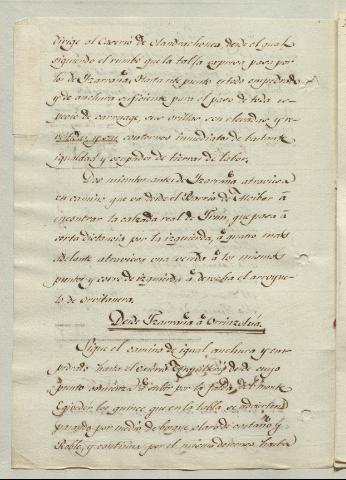 dirige al Caserio de Olandrachouca, desde el qual
siguiendo el rumbo que la tabla expresa pasa por
lo de Izarraña. Hasta este punto es todo empedrado
y de anchura suficiente para el paso de toda es-
pecie de carruage, sus orillas son elevadas y
sus contornos inmediatos de bastante
igualdad y ocupados de tierras de labor.
Dos minutos antes de Izarraña atraviesa
un camino que va desde el Barrio de Alcibar á
encontrar la calzada real de Irun, que pasa á
corta distancia por la izquierda, á quatro mas
adelante atraviesa una vereda á los mismos
puntos y corre de izquierda á derecha el arroyue-
lo de
Desde Izarraña á
Sigue el camino de igual anchura y em-
pedrado hasta el Caserio desde cuyo
punto comienza á subir por la falda del monte
los quince que en la tabla se advierten
pasando por medio de bosque claro de castaño y
Roble, y continua por el mismo descenso hasta